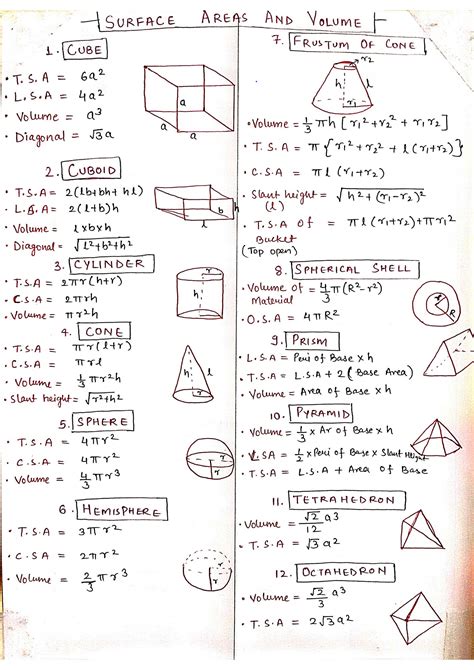 SURFACE AREAS AND VOLUME
1. CUBE
• T.S.A = 6a²
• L.S.A = 4a²
• Volume = a³
• Diagonal = √3a
a
a
a
2. CUBOID
• T.S.A = 2(lb+bh+hl)
• L.S.A = 2(l+b)h
• Volume = l×b×h
• Diagonal = √l²+b²+h²
h
b
l
3. CYLINDER
• T.S.A = 2πr(h+r)
• C.S.A = 2πrh
• Volume = πr²h
r
h
4. CONE
• T.S.A = πr(l+r)
• C.S.A = πrl
• Volume = 1/3 πr²h
• Slant height = √r²+h²
h
l
r
5. SPHERE
• T.S.A = 4πr²
• C.S.A = 4πr²
• Volume = 4/3 πr³
r
6. HEMISPHERE
• T.S.A = 3πr²
• C.S.A = 2πr²
• Volume = 2/3 πr³
r
7. FRUSTUM OF CONE
r2
h
l
r1
• Volume = 1/3 πh [r1²+r2²+r1r2]
• T.S.A = π{r1²+r2²+l(r1+r2)}
• C.S.A = πl(r1+r2)
• Slant height = √h²+(r1-r2)²
(l)
• T.S.A of = πl(r1+r2)+πr1²
Bucket
(Top open)
8. SPHERICAL SHELL
• Volume of = 4/3 π(R³-r³)
Material
• O.S.A = 4πR²
r
R
9. PRISM
• L.S.A = Peri of Base × h
• T.S.A = L.S.A + 2(Base Area)
• Volume = Area of Base × h
10. PYRAMID
• Volume = 1/3 × Ar of Base × h
• LSA = 1/2 × Peri of Base × Slant Height
• T.S.A = L.S.A + Area of Base
11. TETRAHEDRON
• Volume = √2/12 a³
• T.S.A = √3 a²
12. OCTAHEDRON
• Volume = √2/3 a³
• T.S.A = 2√3 a²